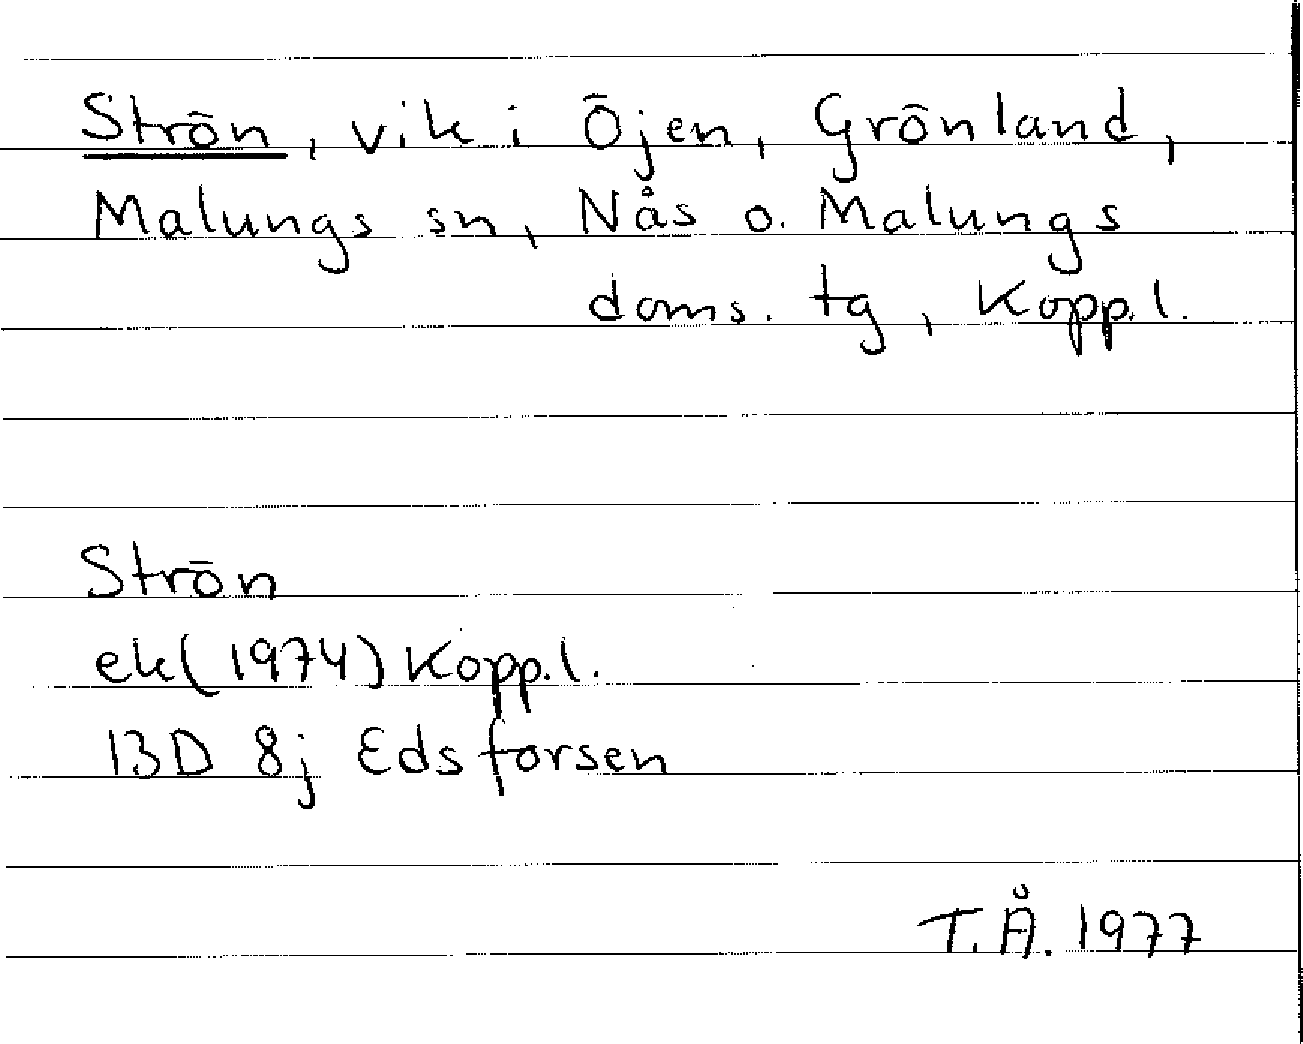 Strön, vik i Öjen, Grönland,
Malungs sn, Nås o. Malungs
doms. tg, Kopp.l.
Strön
ek(1974) Kopp.l.
13D 8j Edsforsen
T.Å. 1977